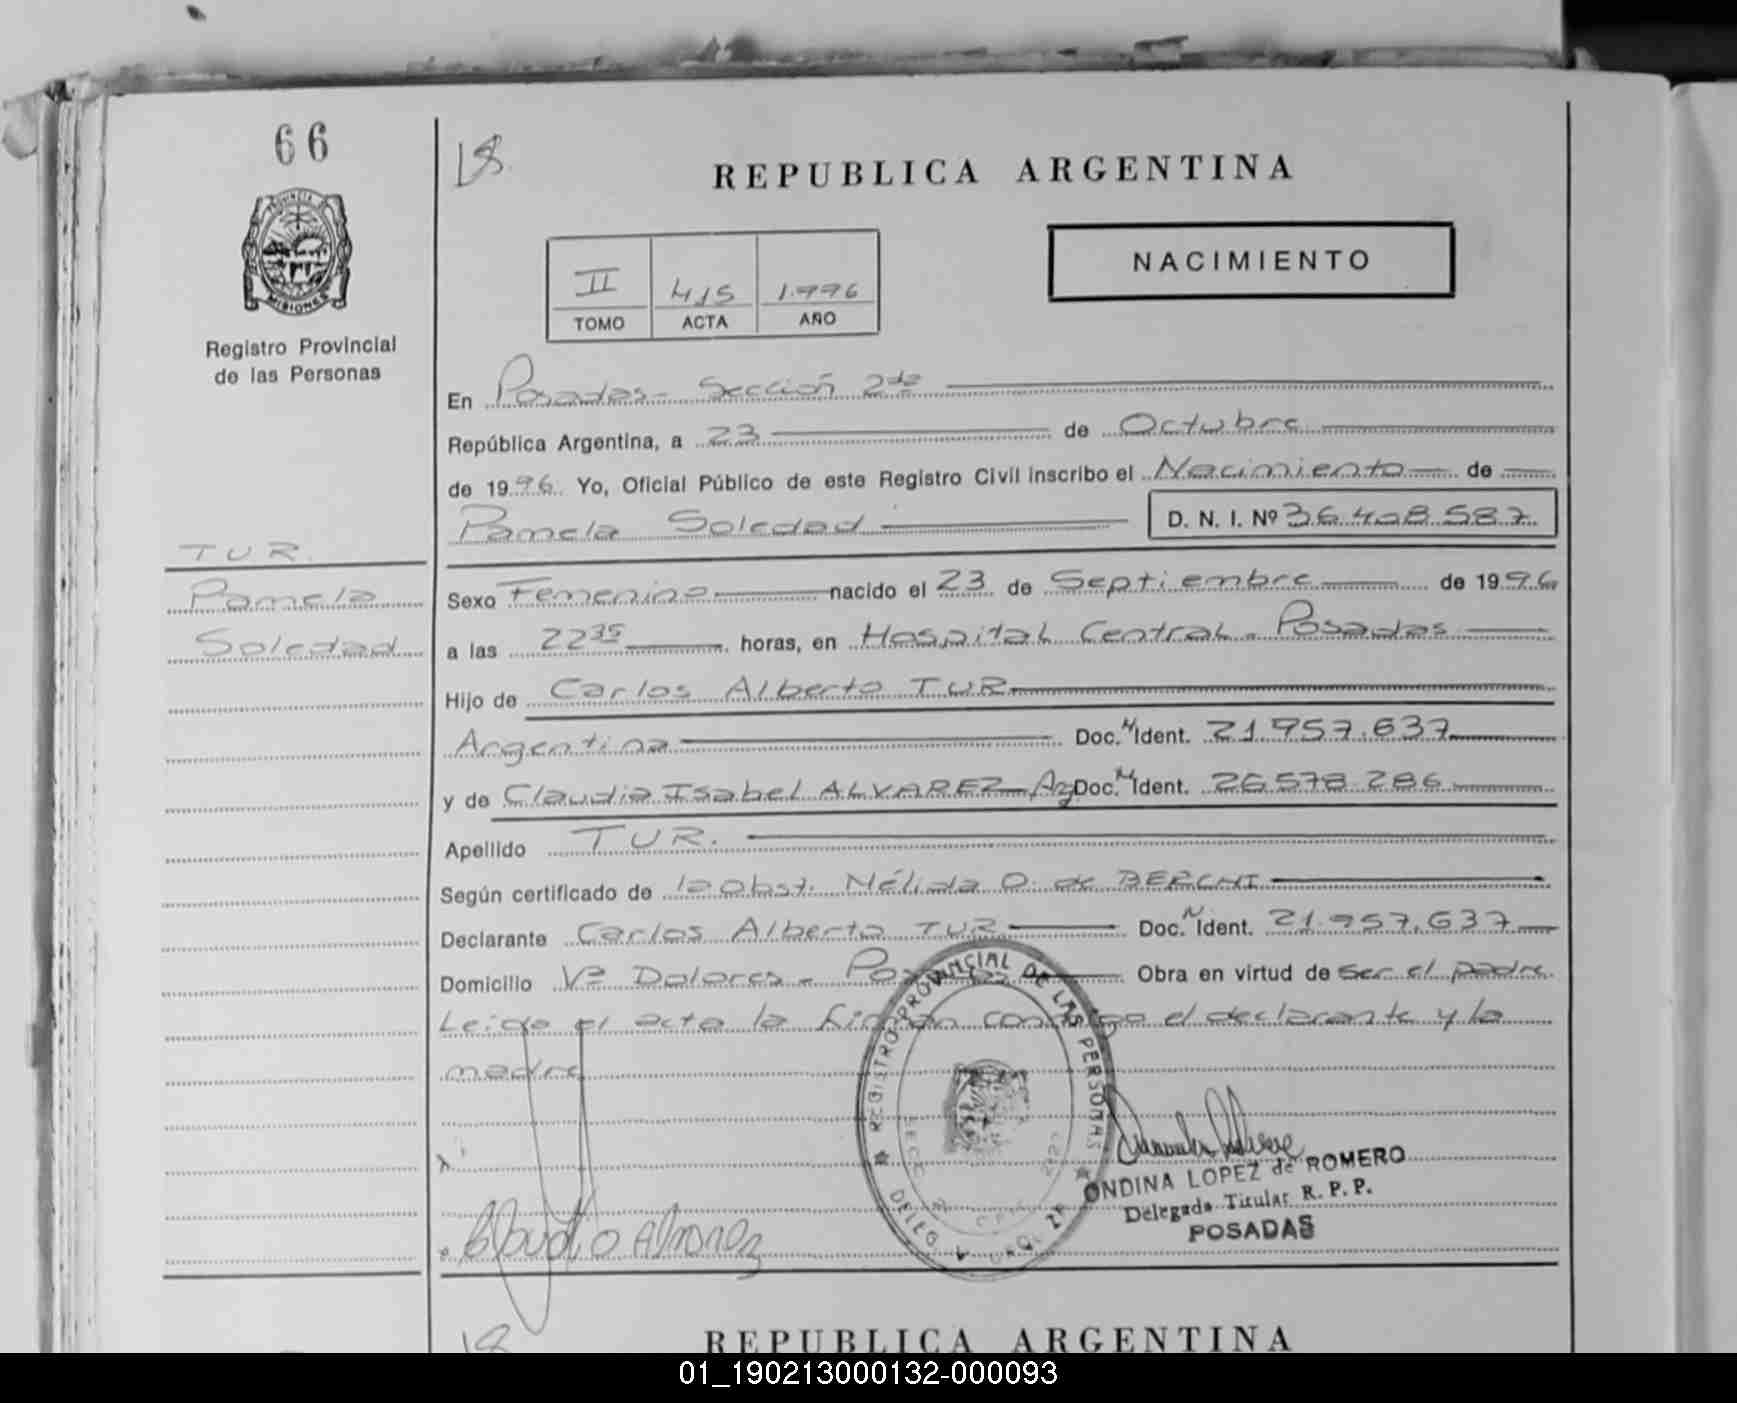 66
18
REPUBLICA ARGENTINA
PROVINCIA DE
MISIONES
Registro Provincial
de las Personas
II 415 1.996
TOMO ACTA AÑO
NACIMIENTO
En Posadas - Sección 2da
República Argentina, a 23 de Octubre
de 1996. Yo, Oficial Público de este Registro Civil inscribo el Nacimiento de
Pamela Soledad D. N. I. Nº 36.408.587
TUR.
Pamela
Soledad
Sexo Femenino nacido el 23 de Septiembre de 1996
a las 22 35 horas, en Hospital Central - Posadas
Hijo de Carlos Alberto TUR
Argentina Doc. N Ident. 21.957.637
y de Claudia Isabel ALVAREZ - Arg Doc. N Ident. 26.578.286
Apellido TUR.
Según certificado de la Obst. Nélida O. de BERCHI
Declarante Carlos Alberto TUR Doc. N Ident. 21.957.637
Domicilio Vª Dolores - Posadas Obra en virtud de ser el padre.
Leida el acta la firman conmigo el declarante y la
madre
REGISTRO PROVINCIAL DE LAS PERSONAS
Claudia Alvarez
ONDINA LOPEZ de ROMERO
Delegada Titular R. P. P.
POSADAS
18
REPUBLICA ARGENTINA
01_190213000132-000093